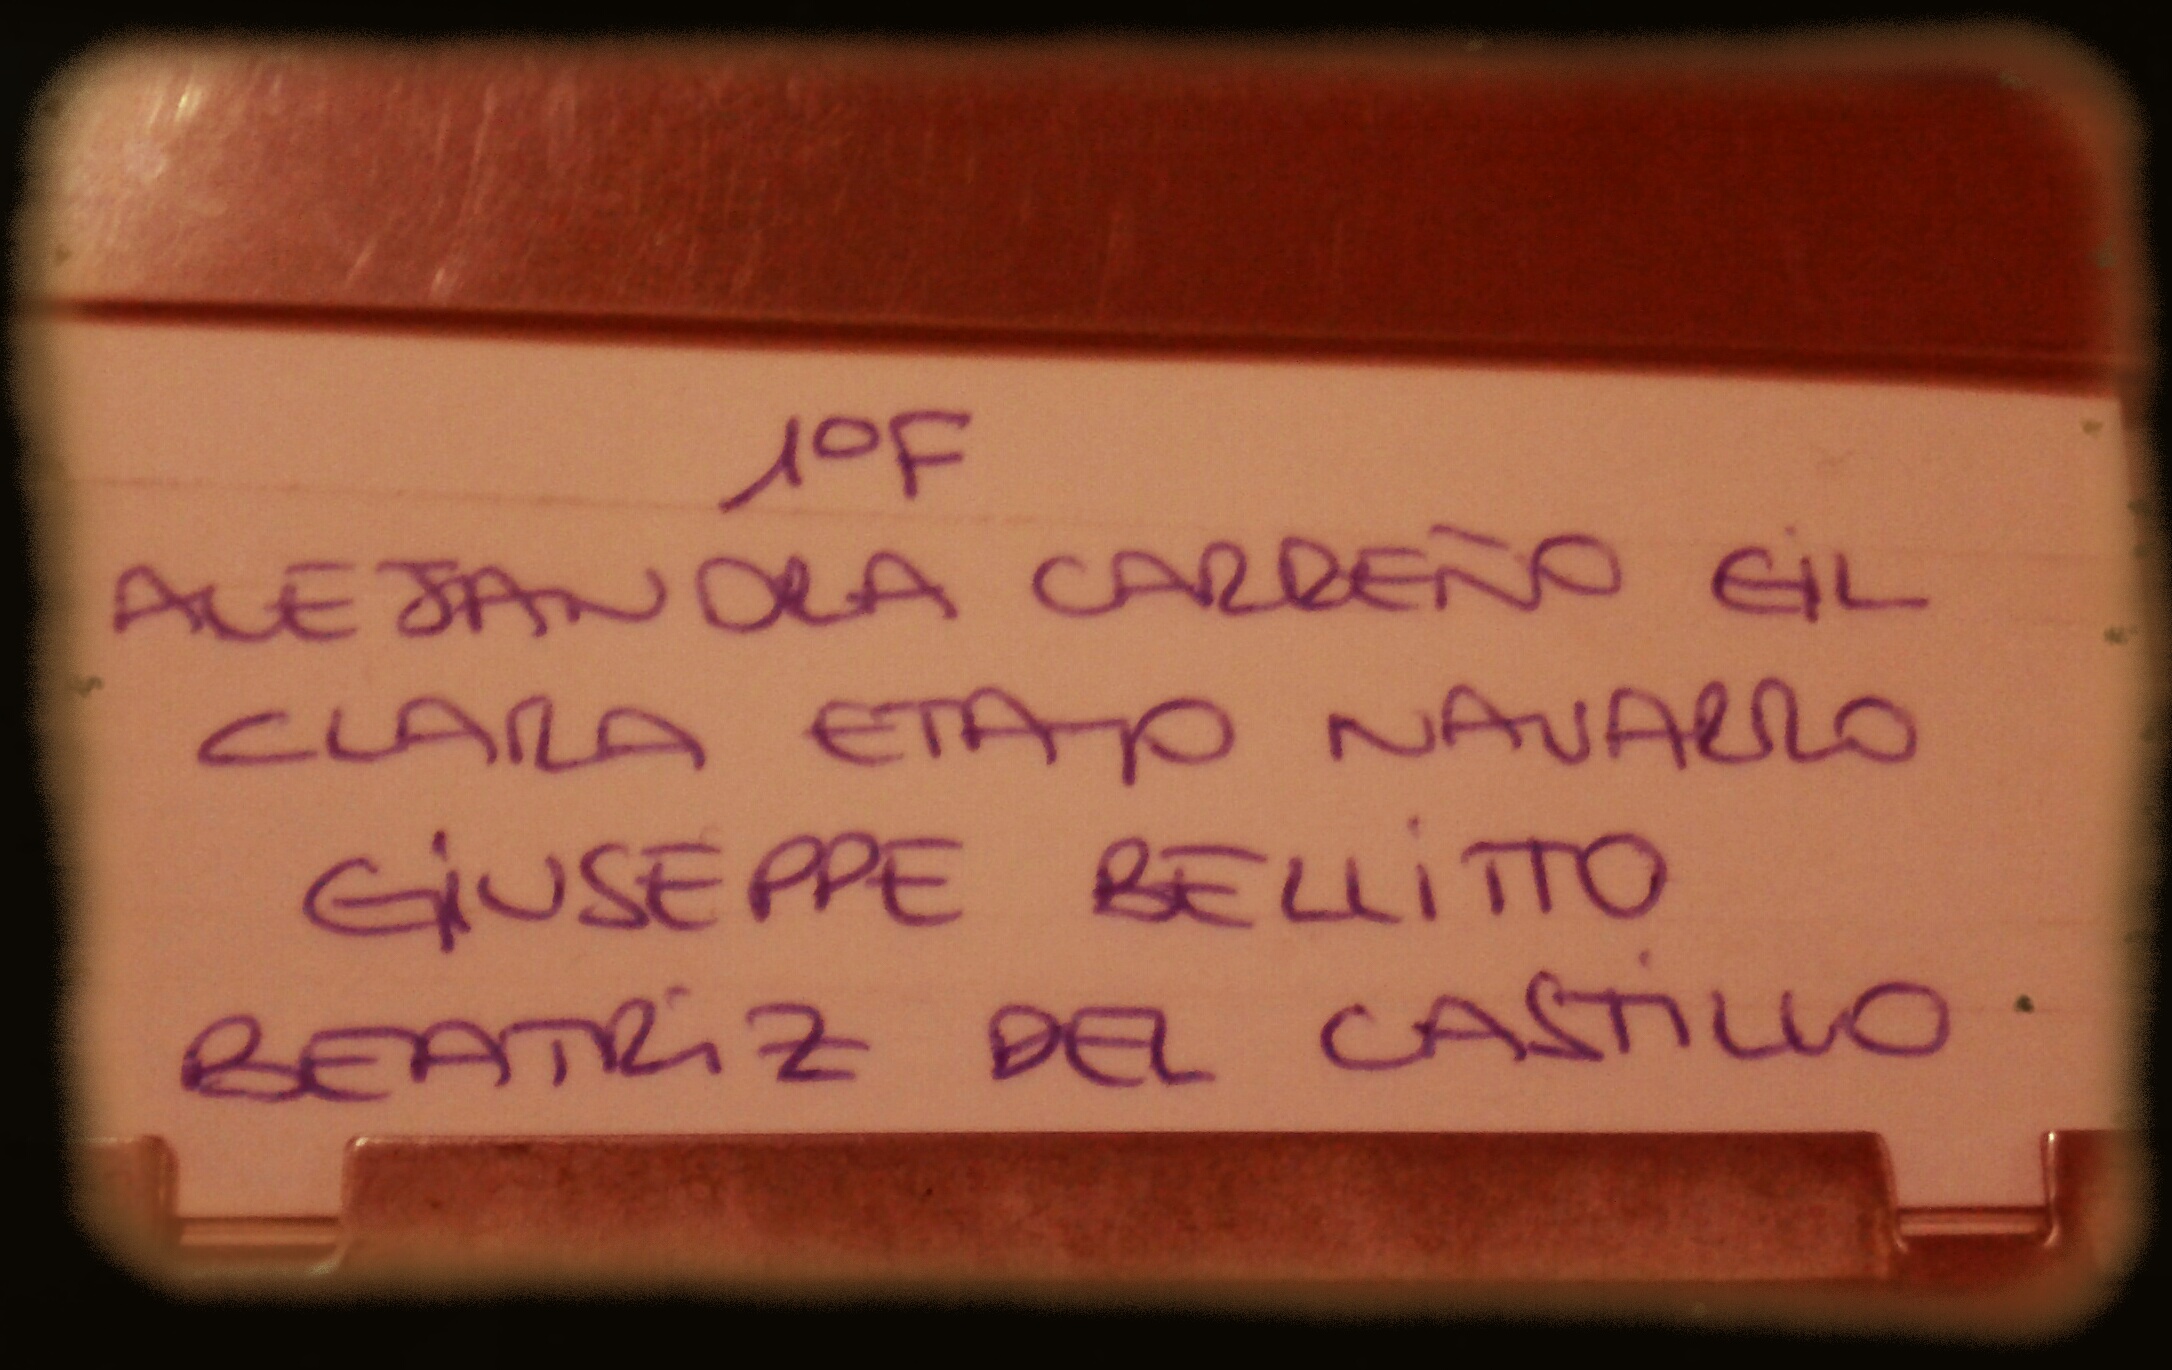 1ºF
ALEJANDRA CARREÑO GIL
CLARA ETAYO NAVARRO
GIUSEPPE BELLITTO
BEATRIZ DEL CASTILLO